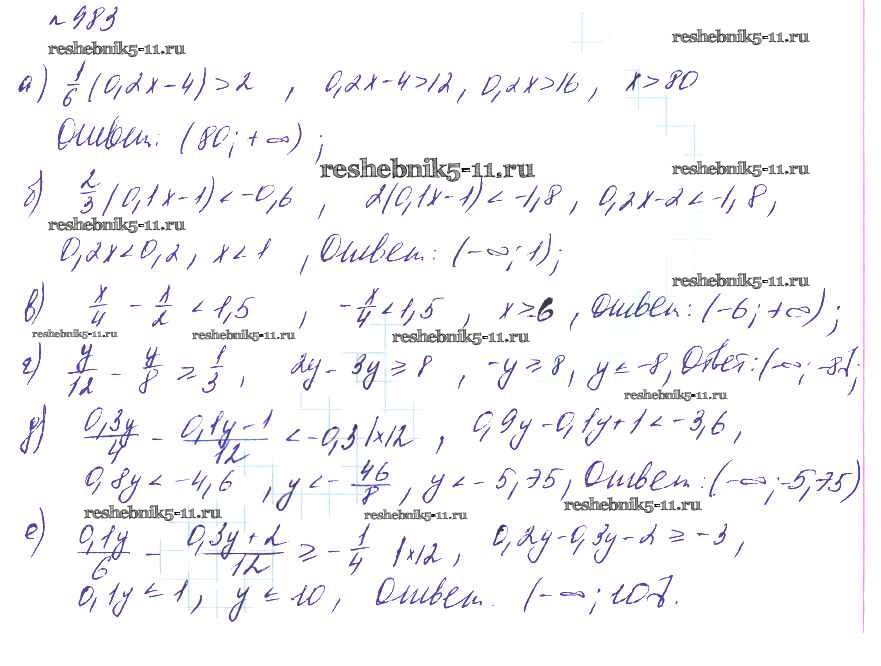 №983
reshebnik5-11.ru
reshebnik5-11.ru
а) 1/6 (0,2x-4)>2 , 0,2x-4>12, 0,2x>16, x>80
Ответ: (80;+∞);
reshebnik5-11.ru
reshebnik5-11.ru
б) 2/3 (0,1x-1)<-0,6 , 2(0,1x-1)<-1,8, 0,2x-2<-1,8,
reshebnik5-11.ru
0,2x<0,2, x<1 , Ответ: (-∞;1);
reshebnik5-11.ru
в) x/4 - x/2 <1,5 , -x/4<1,5 , x>6 , Ответ: (-6;+∞);
reshebnik5-11.ru
reshebnik5-11.ru
reshebnik5-11.ru
г) y/12 - y/8 ≥ 1/3, 2y-3y≥8 , -y≥8, y≤-8, Ответ: (-∞;-8];
reshebnik5-11.ru
д) 0,3y/4 - 0,1y-1/12 <-0,3 |×12 , 0,9y-0,1y+1<-3,6,
0,8y<-4,6 , y<-46/8, y<-5,75, Ответ: (-∞;-5,75)
reshebnik5-11.ru
reshebnik5-11.ru
reshebnik5-11.ru
е) 0,1y/6 - 0,3y+2/12 ≥ -1/4 |×12, 0,2y-0,3y-2≥-3,
0,1y≤1, y≤10, Ответ. (-∞;10].